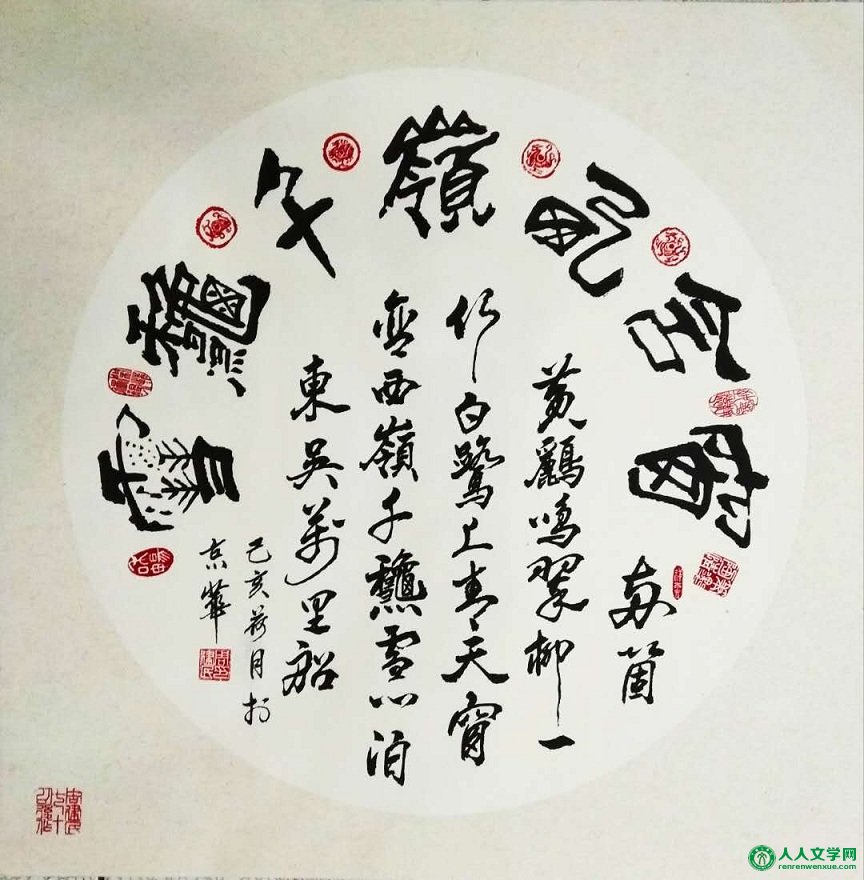 窗含西嶺千龝雪
两箇
黄鸝鳴翠柳一
行白鷺上青天窗
含西嶺千龝雪门泊
東吴萬里船
己亥荷月於
京華
人人文学网
renrenwenxue.com